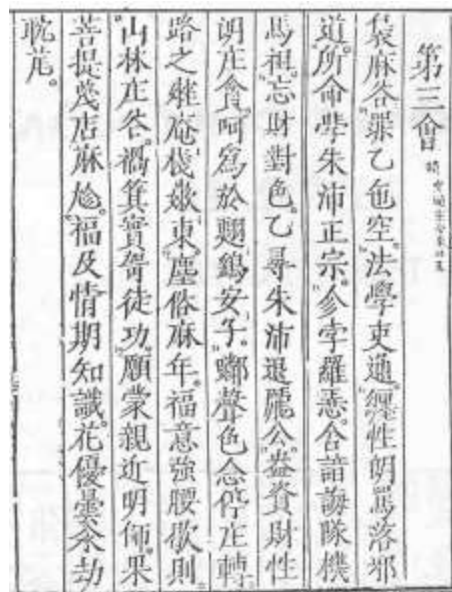 第三會
裊麻谷。罪乙㐌空。法學吏通。纒性朗罵落邪
道。所命學朱沛正宗。㐱孛羅悉。舍諳誨隊機
馬祖。忘財對色。乙尋朱沛退龐公。盎資財性
朗庄貪。呵爲於翹鷂安子。聲色念停庄轉
路之庵棧嫩東。塵俗麻年。福意強腰歇則
山林庄谷。禍箕實哿徒功。願蒙親近明師。果
菩提蔑店麻。福及情期知識。花優曇余劫
耽芄。